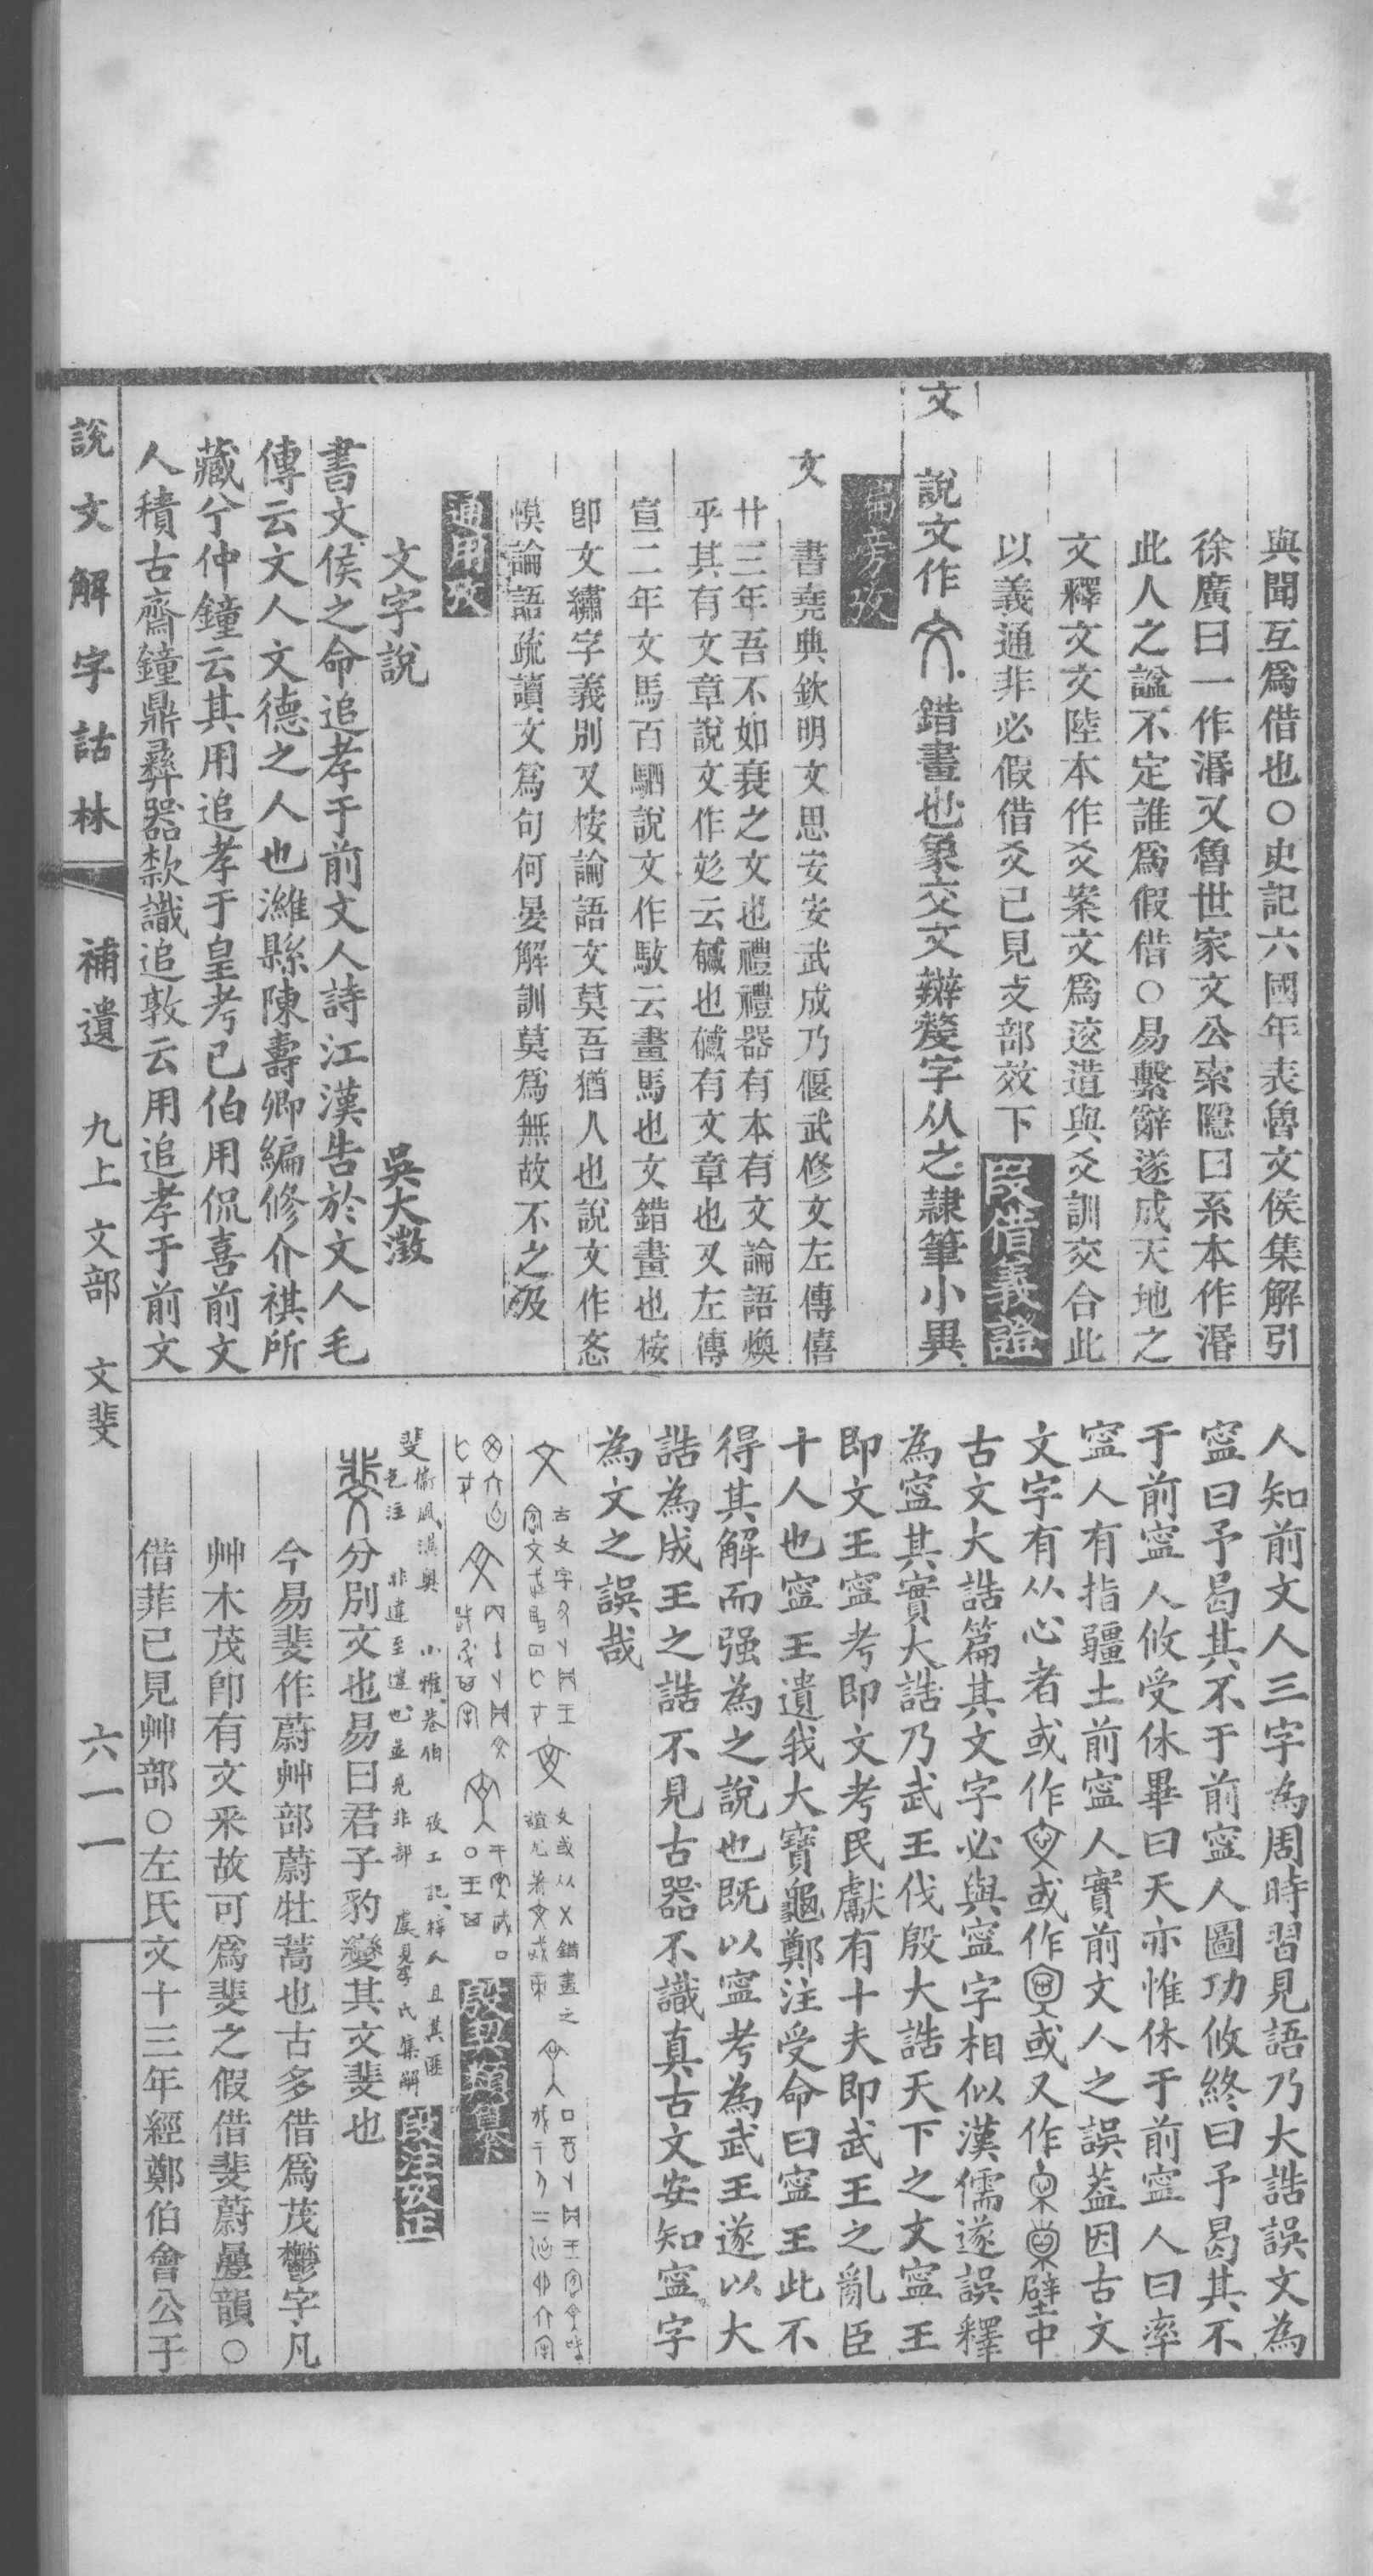 與聞互爲借也○史記六國年表魯文侯集解引
徐廣曰一作湣又魯世家文公索隱曰系本作湣
此人之謚不定誰爲假借○易繫辭遂成天地之
文釋文文陸本作爻案文爲迻造與爻訓交合此
以義通非必假借爻已見攴部效下 叚借義證
文 說文作 錯畫也象交文辬嫠字从之隸筆小異
偏旁攷
文 書堯典欽明文思安安武成乃偃武修文左傳僖
廿三年吾不如衰之文也禮禮器有本有文論語煥
乎其有文章說文作彣云𢒈也𢒈有文章也又左傳
宣二年文馬百駟說文作駇云畫馬也文錯畫也桉
卽文繡字義別又桉論語文莫吾猶人也說文作忞
慔論語疏讀文爲句何晏解訓莫爲無故不之及
通用攷
文字說 吳大澂
書文侯之命追孝于前文人詩江漢告於文人毛
傳云文人文德之人也濰縣陳壽卿編修介祺所
藏兮仲鐘云其用追孝于皇考己伯用侃喜前文
人積古齋鐘鼎彝器款識追敦云用追孝于前文
人知前文人三字為周時習見語乃大誥誤文為
寍曰予曷其不于前寍人圖功攸終曰予曷其不
于前寍人攸受休畢曰天亦惟休于前寍人曰率
寍人有指疆土前寍人實前文人之誤葢因古文
文字有从心者或作 或作 或又作 壁中
古文大誥篇其文字必與寍字相似漢儒遂誤釋
為寍其實大誥乃武王伐殷大誥天下之文寍王
即文王寍考即文考民獻有十夫即武王之亂臣
十人也寍王遺我大寶龜鄭注受命曰寍王此不
得其解而强為之說也既以寍考為武王遂以大
誥為成王之誥不見古器不識真古文安知寍字
為文之誤哉
文 古文字
文或从乂錯畫之
誼
殷契類纂
斐 衞風淇奧 小雅巷伯 攷工記梓人且其匪
色注 非違至違也並見非部 虞夏 氏集解 段注攷正
分別文也易曰君子豹變其文斐也
今易斐作蔚艸部蔚牡蒿也古多借爲茂鬱字凡
艸木茂卽有文釆故可爲斐之假借斐蔚曡韻○
借菲已見艸部○左氏文十三年經鄭伯會公于
說文解字詁林 補遺 九上 文部 文斐 六一一